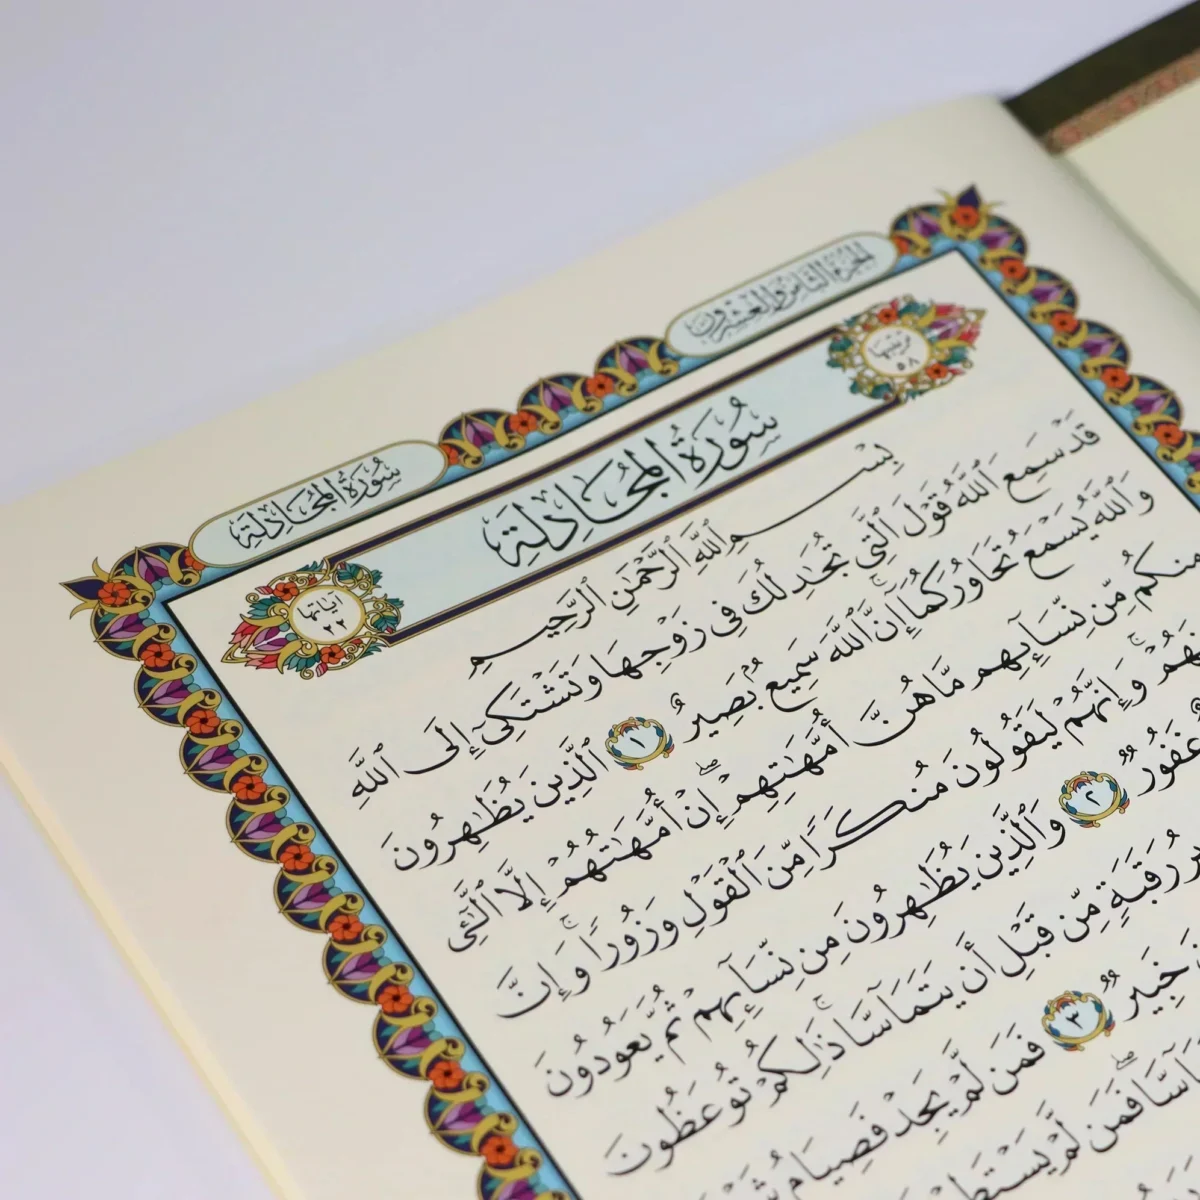 الجزء الثامن والعشرون
سُورَةُ المُجَادلَة
ترتيبها
٥٨
سُورَةُ المُجَادِلَةِ
آياتها
٢٢
بِسْمِ ٱللَّهِ ٱلرَّحْمَٰنِ ٱلرَّحِيمِ
قَدْ سَمِعَ ٱللَّهُ قَوْلَ ٱلَّتِى تُجَٰدِلُكَ فِى زَوْجِهَا وَتَشْتَكِىٓ إِلَى ٱللَّهِ
وَٱللَّهُ يَسْمَعُ تَحَاوُرَكُمَآ ۚ إِنَّ ٱللَّهَ سَمِيعٌۢ بَصِيرٌ ١ ٱلَّذِينَ يُظَٰهِرُونَ
مِنكُم مِّن نِّسَآئِهِم مَّا هُنَّ أُمَّهَٰتِهِمْ ۖ إِنْ أُمَّهَٰتُهُمْ إِلَّا ٱلَّٰٓـِٔى
وَإِنَّهُمْ لَيَقُولُونَ مُنكَرًا مِّنَ ٱلْقَوْلِ وَزُورًا ۚ وَإِنَّ
غَفُورٌ ٢ وَٱلَّذِينَ يُظَٰهِرُونَ مِن نِّسَآئِهِمْ ثُمَّ يَعُودُونَ
رَقَبَةٍ مِّن قَبْلِ أَن يَتَمَآسَّا ۚ ذَٰلِكُمْ تُوعَظُونَ
خَبِيرٌ ٣ فَمَن لَّمْ يَجِدْ فَصِيَامُ
فَمَن لَّمْ يَسْتَطِعْ